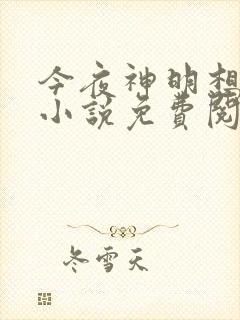 今夜神明想
小說免費閱
冬雪天